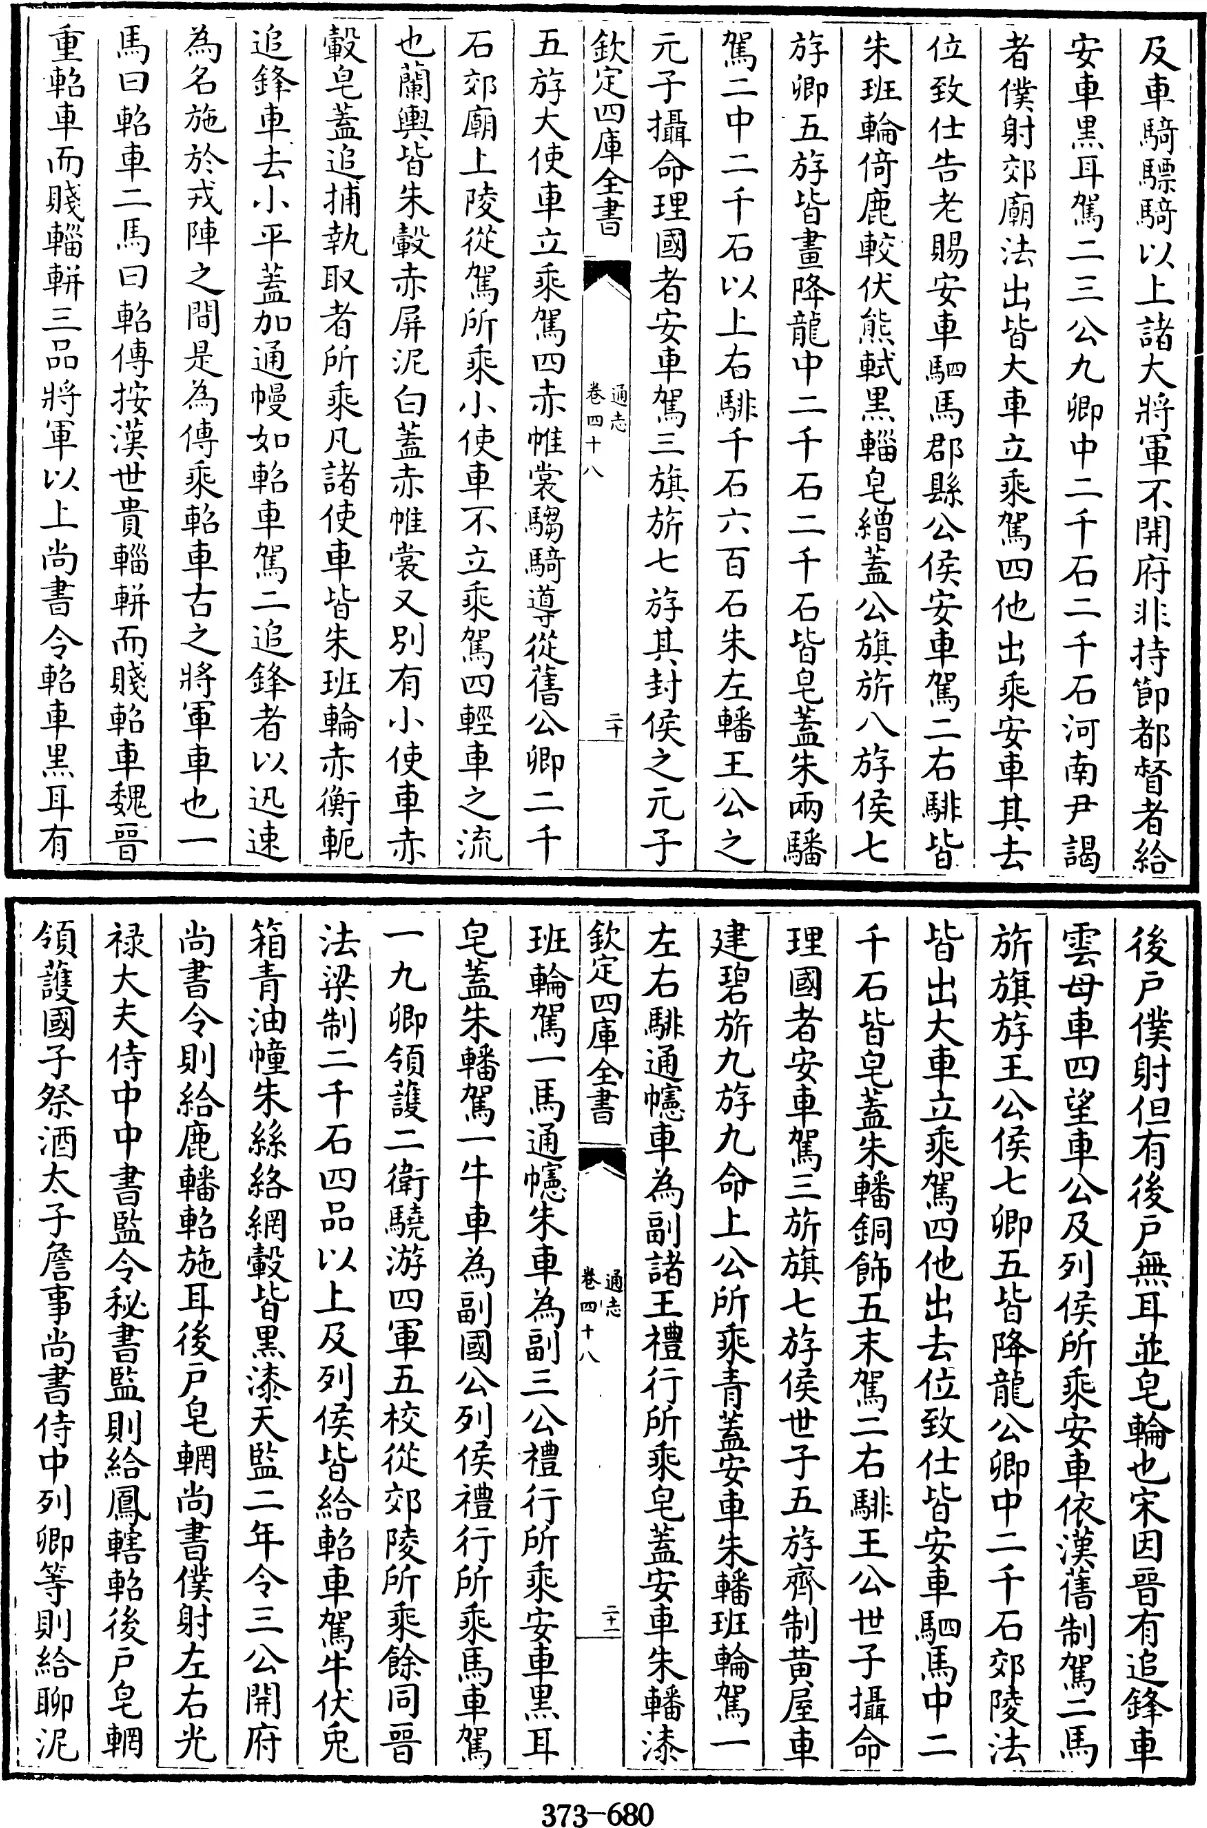 及車騎驃騎以上諸大將軍不開府非持節都督者給
安車黑耳駕二三公九卿中二千石二千石河南尹謁
者僕射郊廟法出皆大車立乘駕四他出乘安車其去
位致仕告老賜安車駟馬郡縣公侯安車駕二右騑皆
朱班輪倚鹿較伏熊軾黑輜皂繒蓋公旗旂八斿侯七
斿卿五斿皆畫降龍中二千石二千石皆皂蓋朱兩轓
駕二中二千石以上右騑千石六百石朱左轓王公之
元子攝命理國者安車駕三旗旂七斿其封侯之元子
欽定四庫全書
通志
卷四十八
二十
五斿大使車立乘駕四赤帷裳騶騎導從舊公卿二千
石郊廟上陵從駕所乘小使車不立乘駕四輕車之流
也蘭輿皆朱轂赤屏泥白蓋赤帷裳又別有小使車赤
轂皂蓋追捕執取者所乘凡諸使車皆朱班輪赤衡軛
追鋒車去小平蓋加通幔如軺車駕二追鋒者以迅速
為名施於戎陣之間是為傳乘軺車古之將軍車也一
馬曰軺車二馬曰軺傳按漢世貴輜軿而賤軺車魏晉
重軺車而賤輜軿三品將軍以上尚書令軺車黑耳有
後戶僕射但有後戶無耳並皂輪也宋因晉有追鋒車
雲母車四望車公及列侯所乘安車依漢舊制駕二馬
旂旗斿王公侯七卿五皆降龍公卿中二千石郊陵法
皆出大車立乘駕四他出去位致仕皆安車駟馬中二
千石皆皂蓋朱轓銅飾五末駕二右騑王公世子攝命
理國者安車駕三旂旗七斿侯世子五斿齊制黃屋車
建碧旂九斿九命上公所乘青蓋安車朱轓班輪駕一
左右騑通幰車為副諸王禮行所乘皂蓋安車朱轓漆
欽定四庫全書
通志
卷四十八
二十一
班輪駕一馬通幰朱車為副三公禮行所乘安車黑耳
皂蓋朱轓駕一牛車為副國公列侯禮行所乘馬車駕
一九卿領護二衛驍游四軍五校從郊陵所乘餘同晉
法梁制二千石四品以上及列侯皆給軺車駕牛伏兎
箱青油幢朱絲絡網轂皆黑漆天監二年令三公開府
尚書令則給鹿轓軺施耳後戶皂輞尚書僕射左右光
祿大夫侍中中書監令秘書監則給鳳轄軺後戶皂輞
領護國子祭酒太子詹事尚書侍中列卿等則給聊泥
373-680